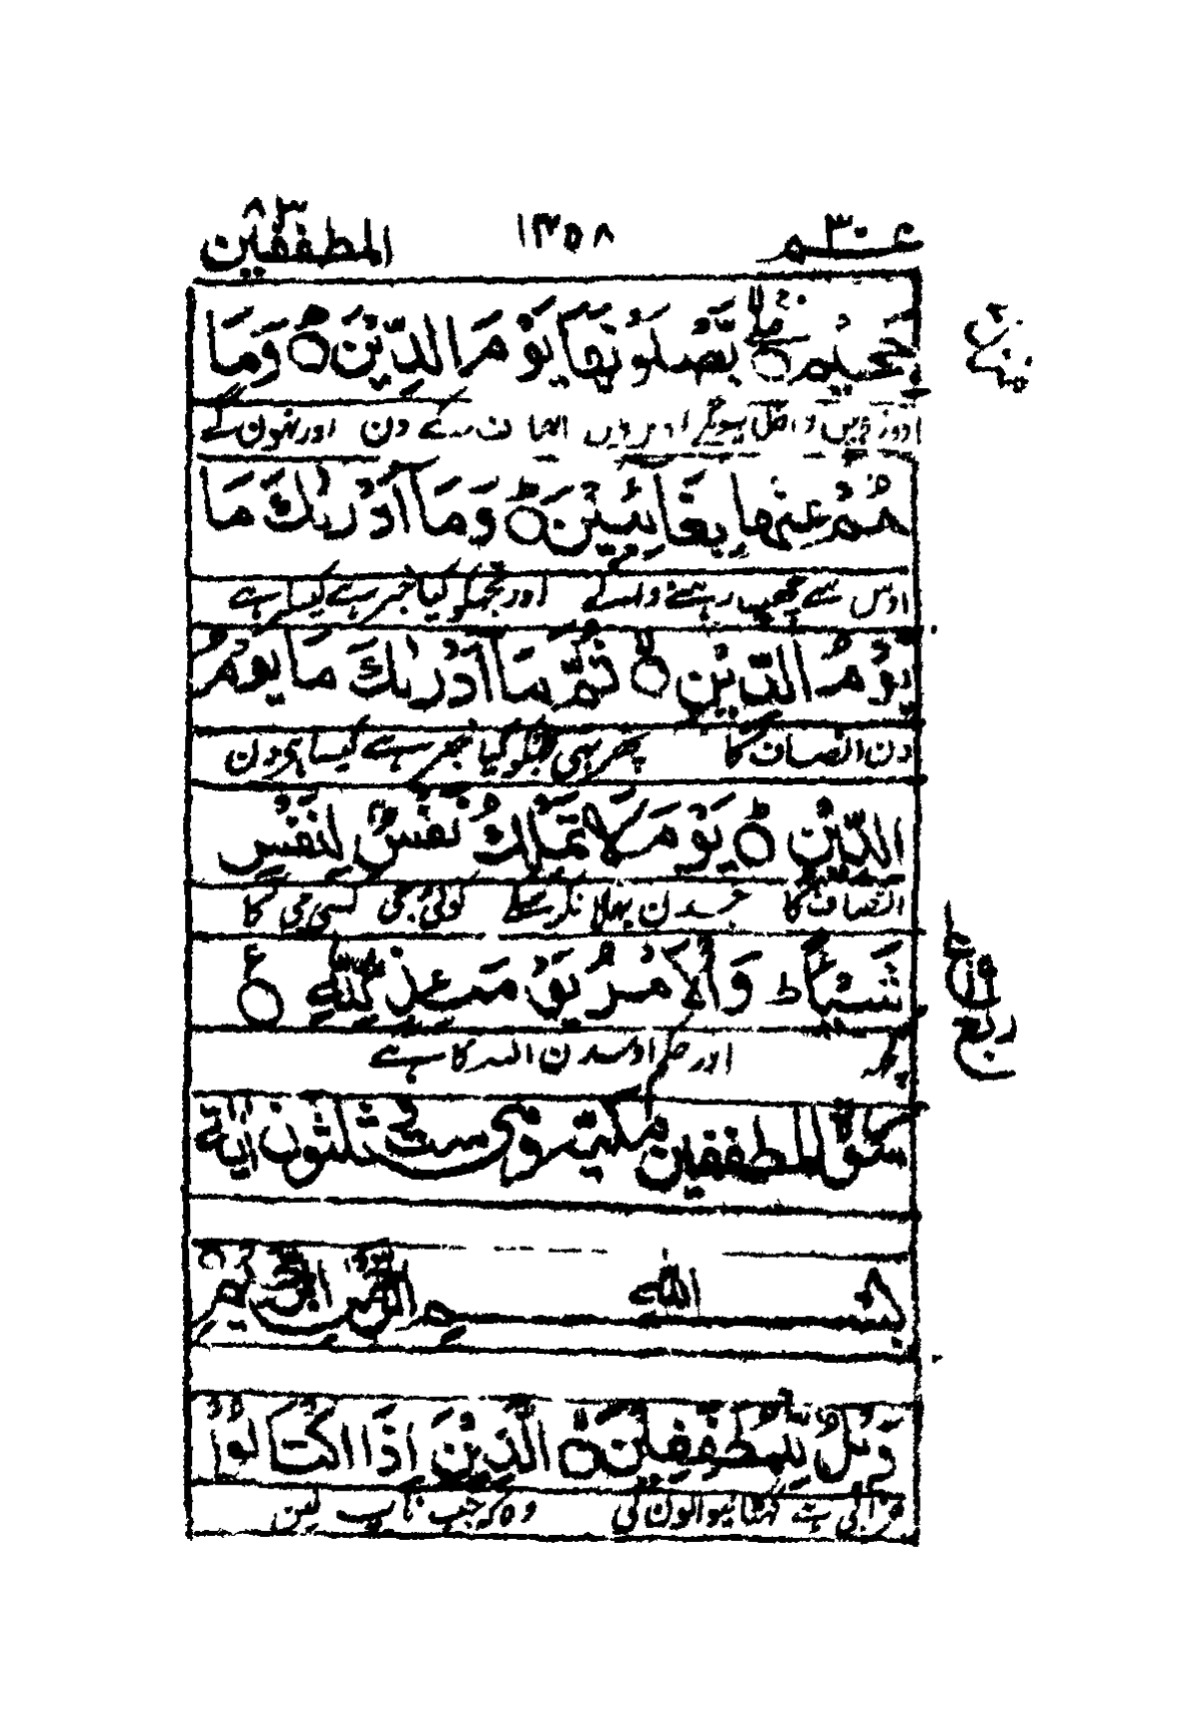 عم ٣٠ ١٣٥٨ المطففين ٨٣
جَحِيْمٍ يَّصْلَوْنَهَا يَوْمَ الدِّيْنِ وَمَا
دوزخ میں داخل ہونگے اوس میں انصاف کے دن اور نہون گے
هُمْ عَنْهَا بِغَآئِبِيْنَ وَمَآ اَدْرٰىكَ مَا
اوس سے چھپ رہنے والے اور تجھکو کیا خبر ہے کیسا ہے
يَوْمُ الدِّيْنِ ثُمَّ مَآ اَدْرٰىكَ مَا يَوْمُ
دن انصاف کا پھر بھی تجھکو کیا خبر ہے کیسا ہے دن
الدِّيْنِ يَوْمَ لَا تَمْلِكُ نَفْسٌ لِّنَفْسٍ
انصاف کا جسدن بھلا نکر سکے کوئی جی کسی جی کا
شَيْئًا ط وَالْاَمْرُ يَوْمَئِذٍ لِّلّٰهِ ع
کچھ اور حکم اوسدن اللہ کا ہے
ربع
سورة المطففين مكية وهي ست و ثلثون اية
بسم الله الرحمن الرحيم
وَيْلٌ لِّلْمُطَفِّفِيْنَ الَّذِيْنَ اِذَا اكْتَالُوْا
خرابی ہے گھٹانیوالون کی وہ کہ جب ناپ لین